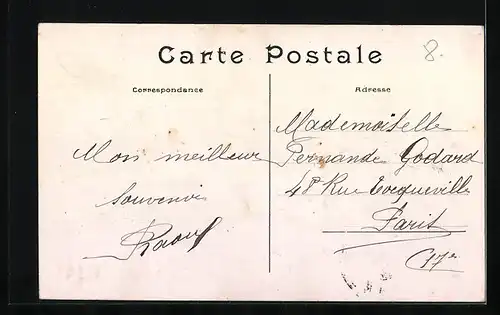 Carte Postale
8.
Correspondance
Adresse
Mon meilleur
souvenir
Raoul
Mademoiselle
Fernande Godard
48 Rue Tocqueville
Paris
17e